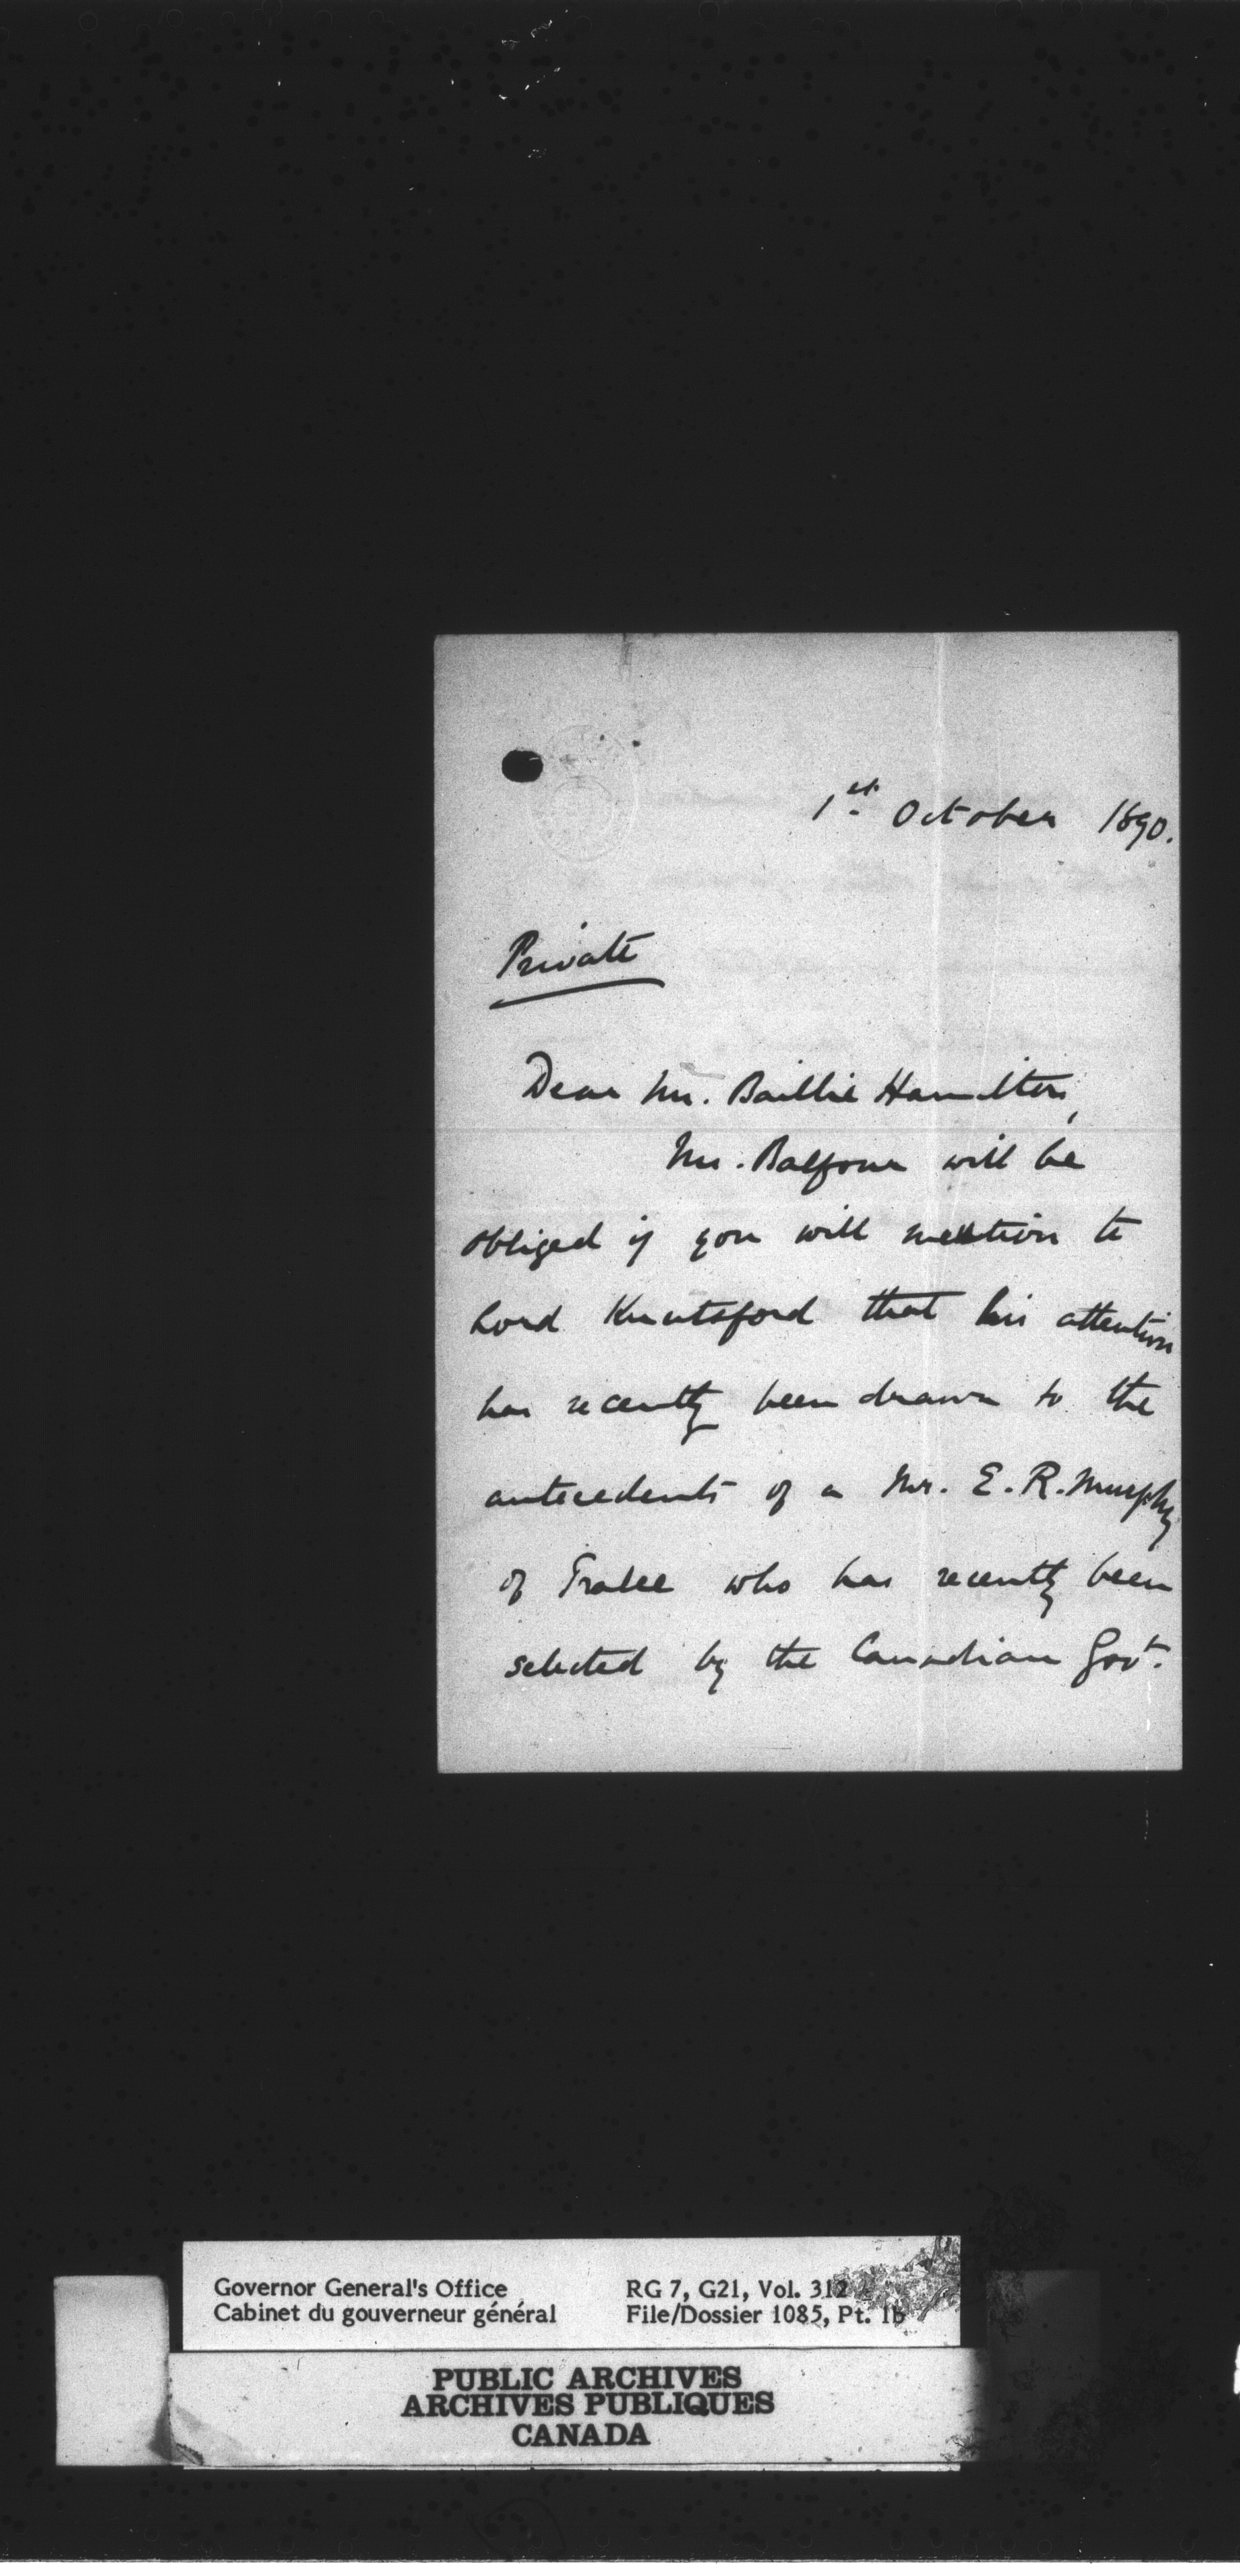 1st. October 1890.
Private
Dear Mr. Baillie Hamilton,
Mr. Balfour will be
obliged if you will mention to
Lord Knutsford that his attention
has recently been drawn to the
antecedents of a Mr. E. R. Murphy
of Tralee who has recently been
selected by the Canadian Govt.
Governor General's Office
Cabinet du gouverneur général
RG 7, G21, Vol. 312
File/Dossier 1085, Pt. 1b
PUBLIC ARCHIVES
ARCHIVES PUBLIQUES
CANADA